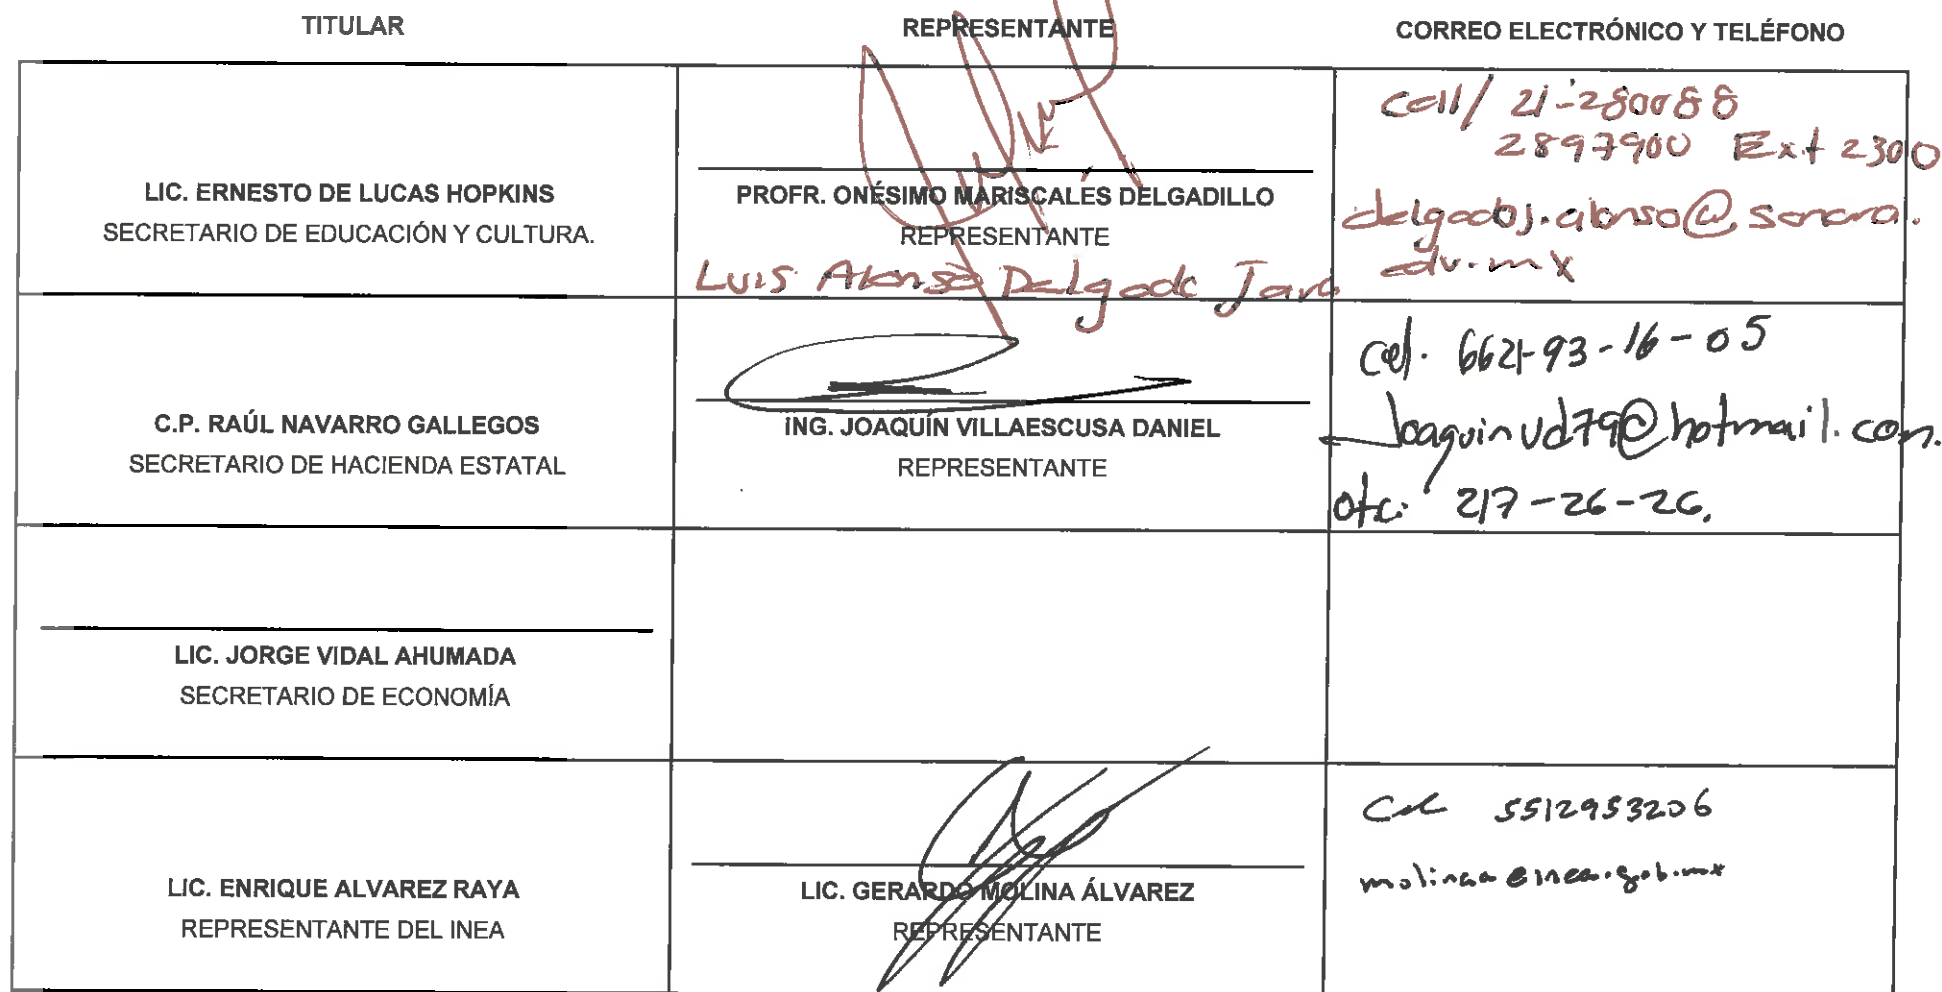 TITULAR
REPRESENTANTE
CORREO ELECTRÓNICO Y TELÉFONO
LIC. ERNESTO DE LUCAS HOPKINS
SECRETARIO DE EDUCACIÓN Y CULTURA.
PROFR. ONÉSIMO MARISCALES DELGADILLO
REPRESENTANTE
Luis Alonso Delgado Jara
2897900 Ext 2300
edu.mx
C.P. RAÚL NAVARRO GALLEGOS
SECRETARIO DE HACIENDA ESTATAL
ING. JOAQUÍN VILLAESCUSA DANIEL
REPRESENTANTE
cel. 6621-93-16-05
Joaquinvd79@hotmail.com.
ofc. 217-26-26.
LIC. JORGE VIDAL AHUMADA
SECRETARIO DE ECONOMÍA
LIC. ENRIQUE ALVAREZ RAYA
REPRESENTANTE DEL INEA
LIC. GERARDO MOLINA ÁLVAREZ
REPRESENTANTE
Cel 5512953206